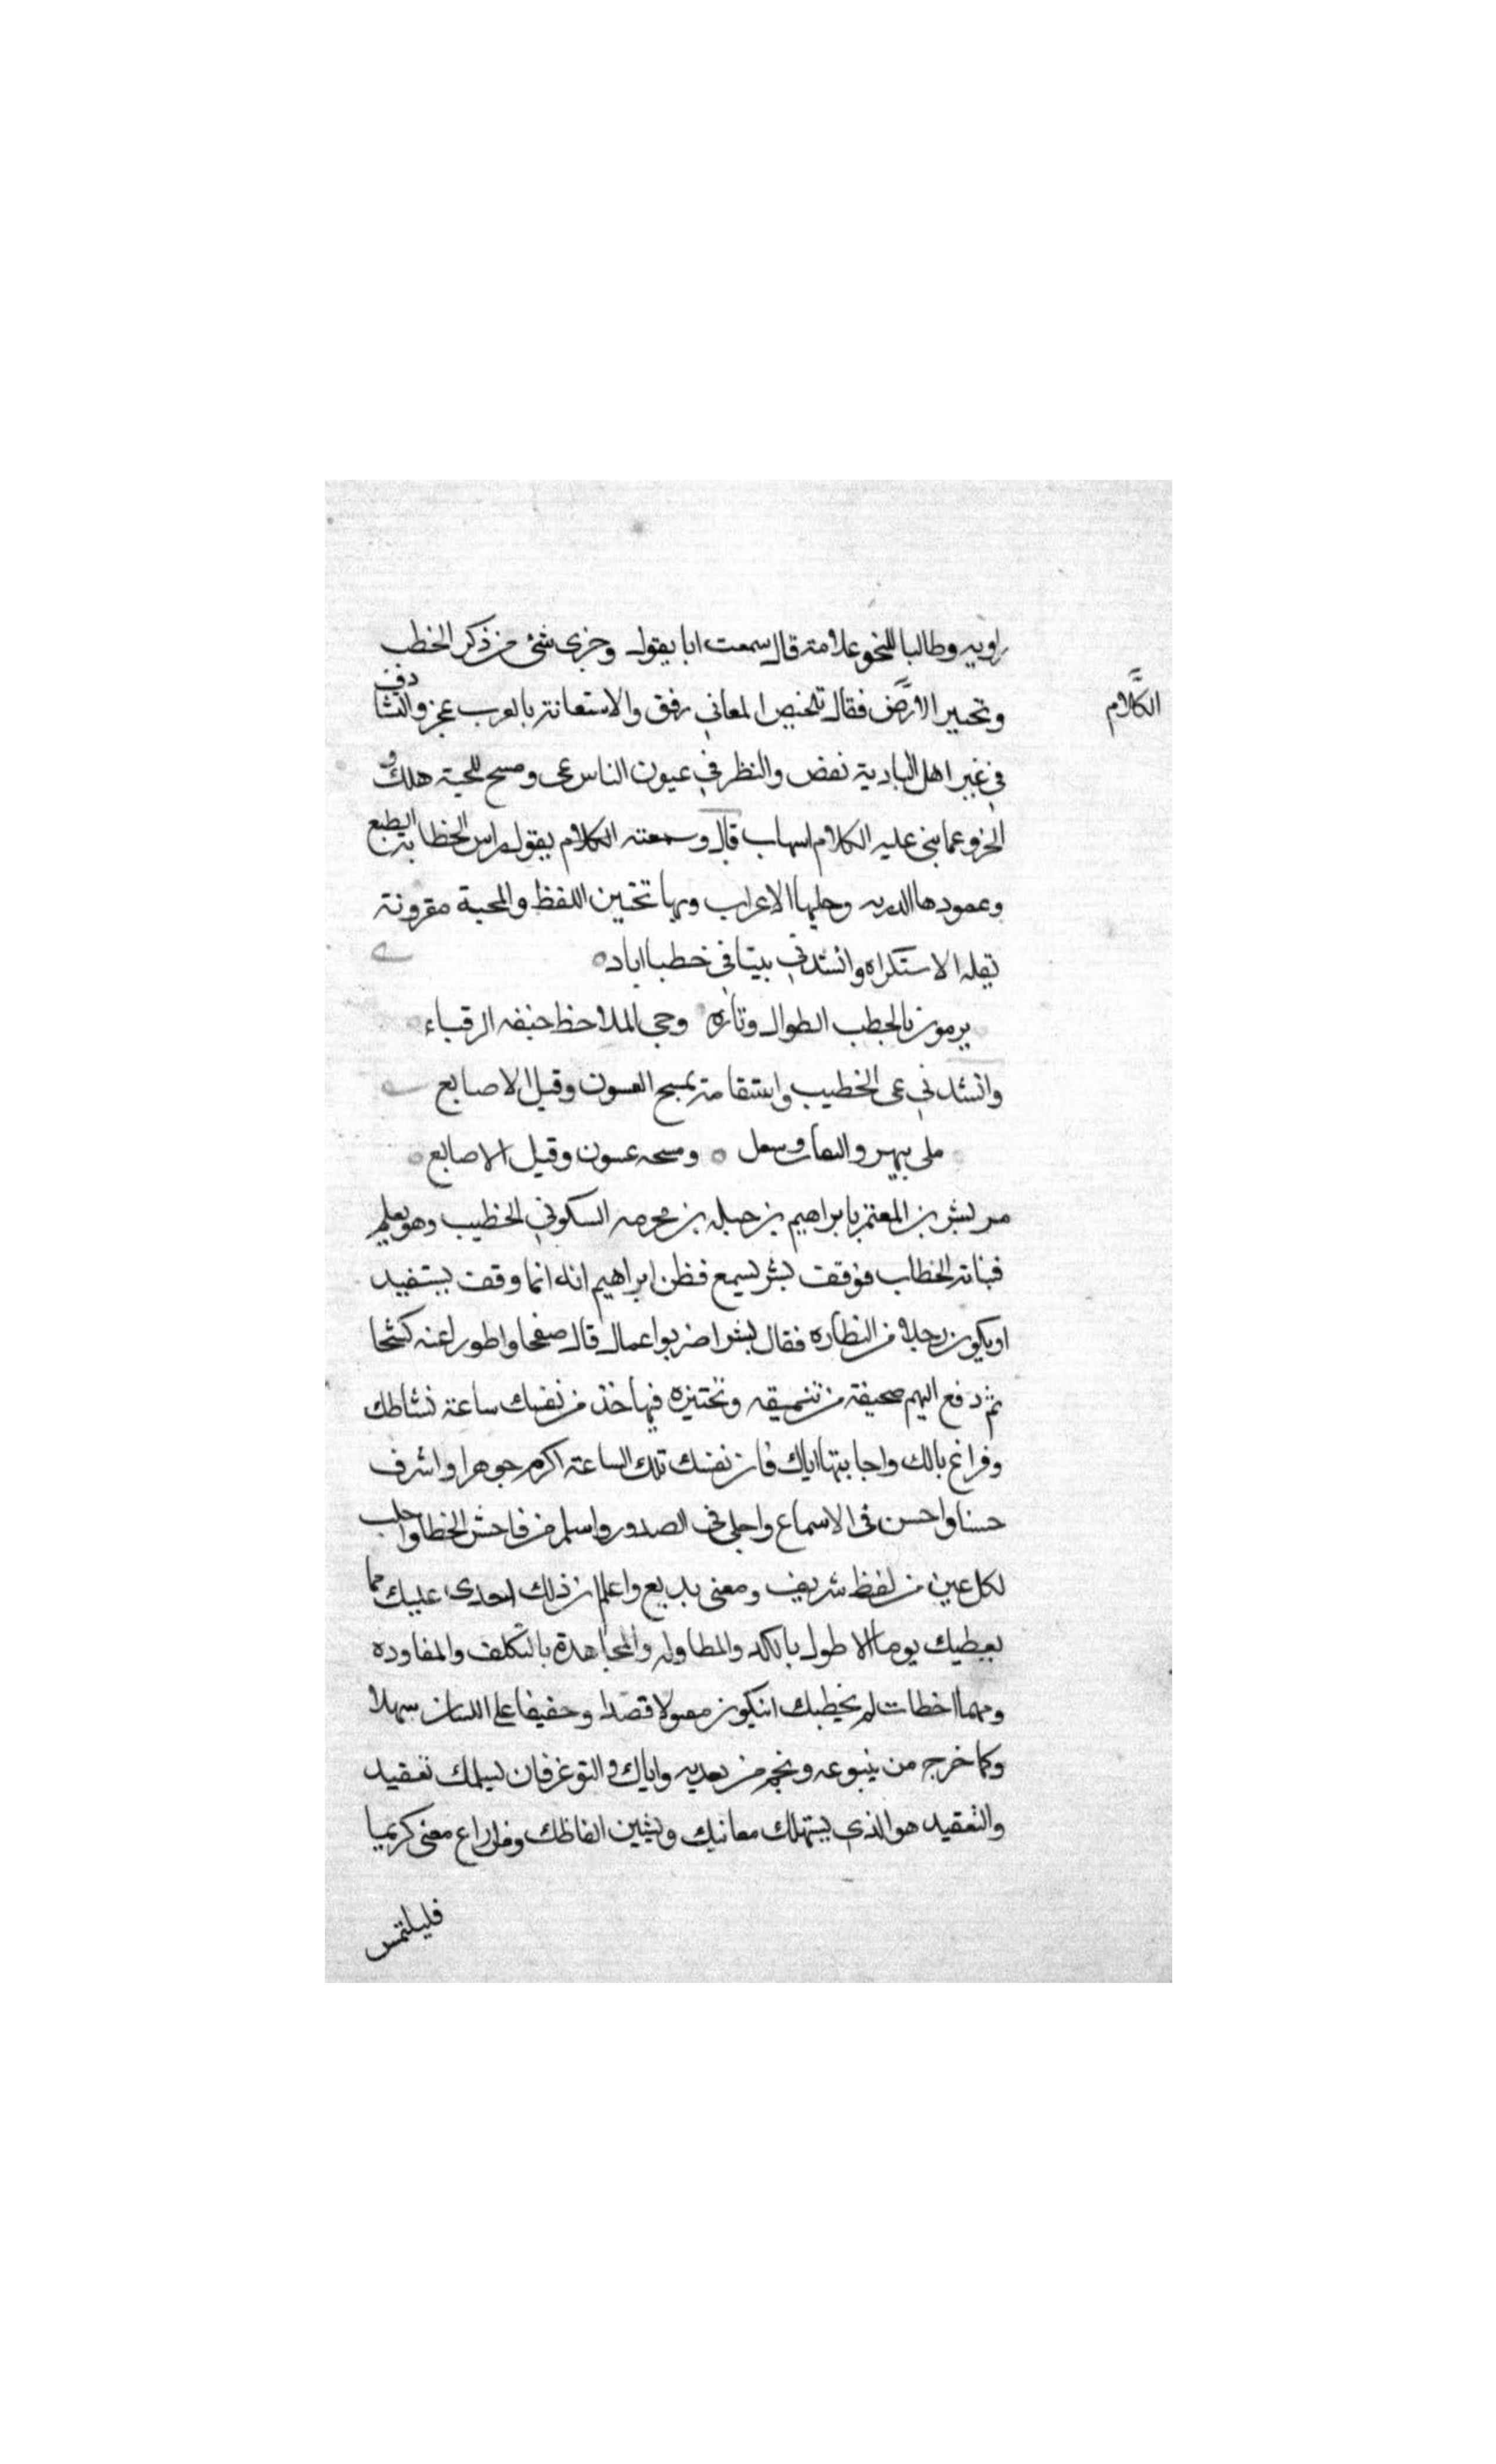 راويه وطالبا للنحو علامة قال سمعت ابا يقول وجرى شئ من ذكر الخطب
الكلام
وتحبير الارض فقال تلخيص المعاني رفق والاستعانة بالعرب عجز والتشادق
في غير اهل البادية نغض والنظر في عيون الناس عى ومسح للحية هلك و
الخروج مما بنى عليه الكلام اسهاب قال وسمعته الكلام يقول راس الخطابة الطبع
وعمودها الدربه وحليها الاعراب وبها تختين اللفظ والمحبة مقرونة
بقله الاستكراه وانشدني بيتا في خطبا اياد
يرمون بالخطب الطوال وتارة وحى الملاحظ خيفه الرقباء
وانشدني عى الخطيب واستقامته بمسح العسون وقيل الاصابع
ملى ببهر والتفات وسعل ومسحه عسون وقيل الاصابع
مر بشر بن المعتمر بابراهيم بن جبله بن مخرمه السكوني الخطيب وهو يعلم
فتيانه الخطاب فوقف بشر ليسمع فظن ابراهيم انه انما وقف ليستفيد
او يكون رجلا من النظاره فقال بشر اضربوا عما قال صفحا واطورا عنه كشحا
ثم دفع اليهم صحيفة من تنميقه وتحتيزه فيها خذ من نفسك ساعة نشاطك
وفراغ بالك واجابتها اياك فان نفسك تلك الساعة اكرم جوهرا واشرف
حسنا واحسن فى الاسماع واحلى في الصدور واسلم من فاحش الخطا واجلب
لكل عين من لفظ شريف ومعنى بديع واعلم ان ذلك اجدى عليك مما
يعطيك يوما الاطول بالكد والمطاوله والمجاهدة بالتكلف والمفاوده
ومهما اخطات لم يخطبك ان يكون مقبولا قصدا وخفيفا على اللسان سهلا
وكما خرج من ينبوعه ونجم من بعديه واياك والتوغر فان ليسلمك تعقيد
والتعقيد هو الذي يستهلك معانيك ويشين الفاظك ومن اراغ معنى كريميا
فليلتمس